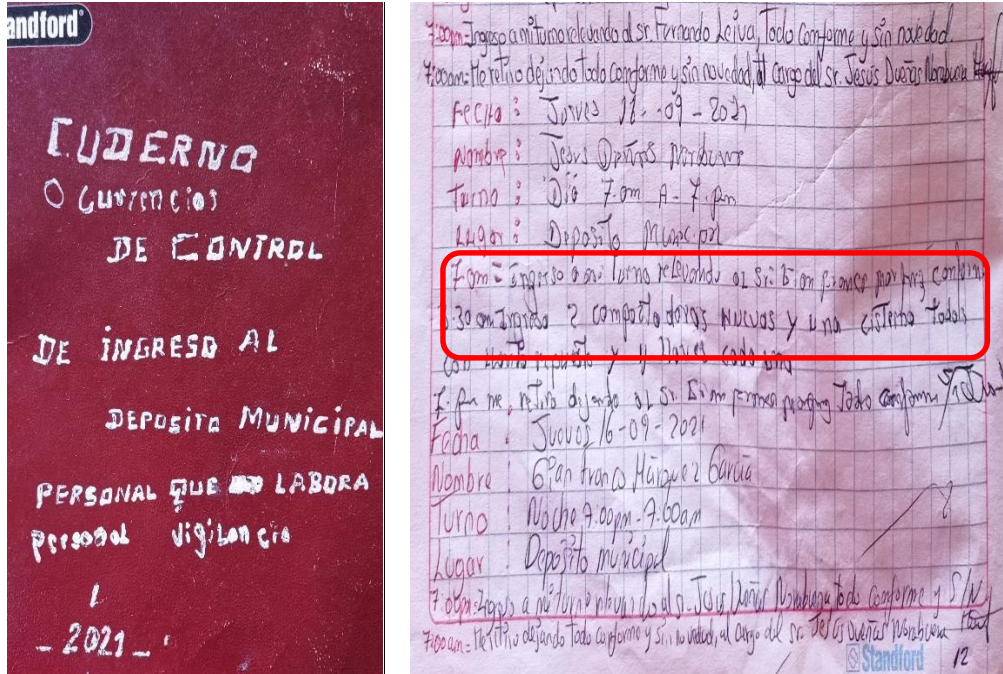 andford
CUDERNO
OCurrencias
DE CONTROL
DE INGRESO AL
DEPOSITO MUNICIPAL
PERSONAL QUE LABORA
personal vigilancia
1
_ 2021 _
7:00am=Ingreso a mi turno relevando al sr. Fernando Leiva, Todo Conforme y sin novedad.
7:00am=Me retiro dejando todo conforme y sin novedad, al cargo del sr. Jesús Dueñas Norabuena
Fecha : Jueves 16-09-2021
Nombre : Jesus Dueñas Norabuena
Turno : Dia 7.am A - 7.pm
Lugar : Deposito
7.am= Ingreso a mi Turno relevando al Sr.
30 am Ingreso 2 compactadoras Nuevos y una cisterna Todos
con llanta repuesto y llaves cada
7. pm me retiro dejando al Sr. Todo conforme
Fecha : Jueves 16-09-2021
Nombre : Gian franco Márquez García
Turno : Noche 7.00pm-7.00am
Lugar : Depósito municipal
7:00pm=Ingreso a mi turno relevando al sr. Jesús Dueñas Norabuena todo conforme y S/N
7:00am=Me retiro dejando todo conforme y sin novedad, al cargo del sr. Jesús Dueñas Norabuena
Standford
12